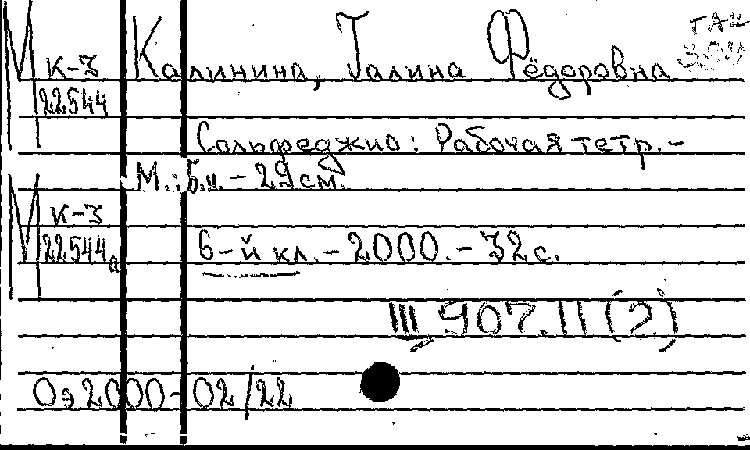 М К-3 Калинина, Галина Фёдоровна
22544
Сольфеджио: Рабочая тетр.-
М.: Б.и. - 29 см.
М К-3
22544а 6-й кл. - 2000. - 32 с.
III 907.11 (2)
Оэ 2000-02/22